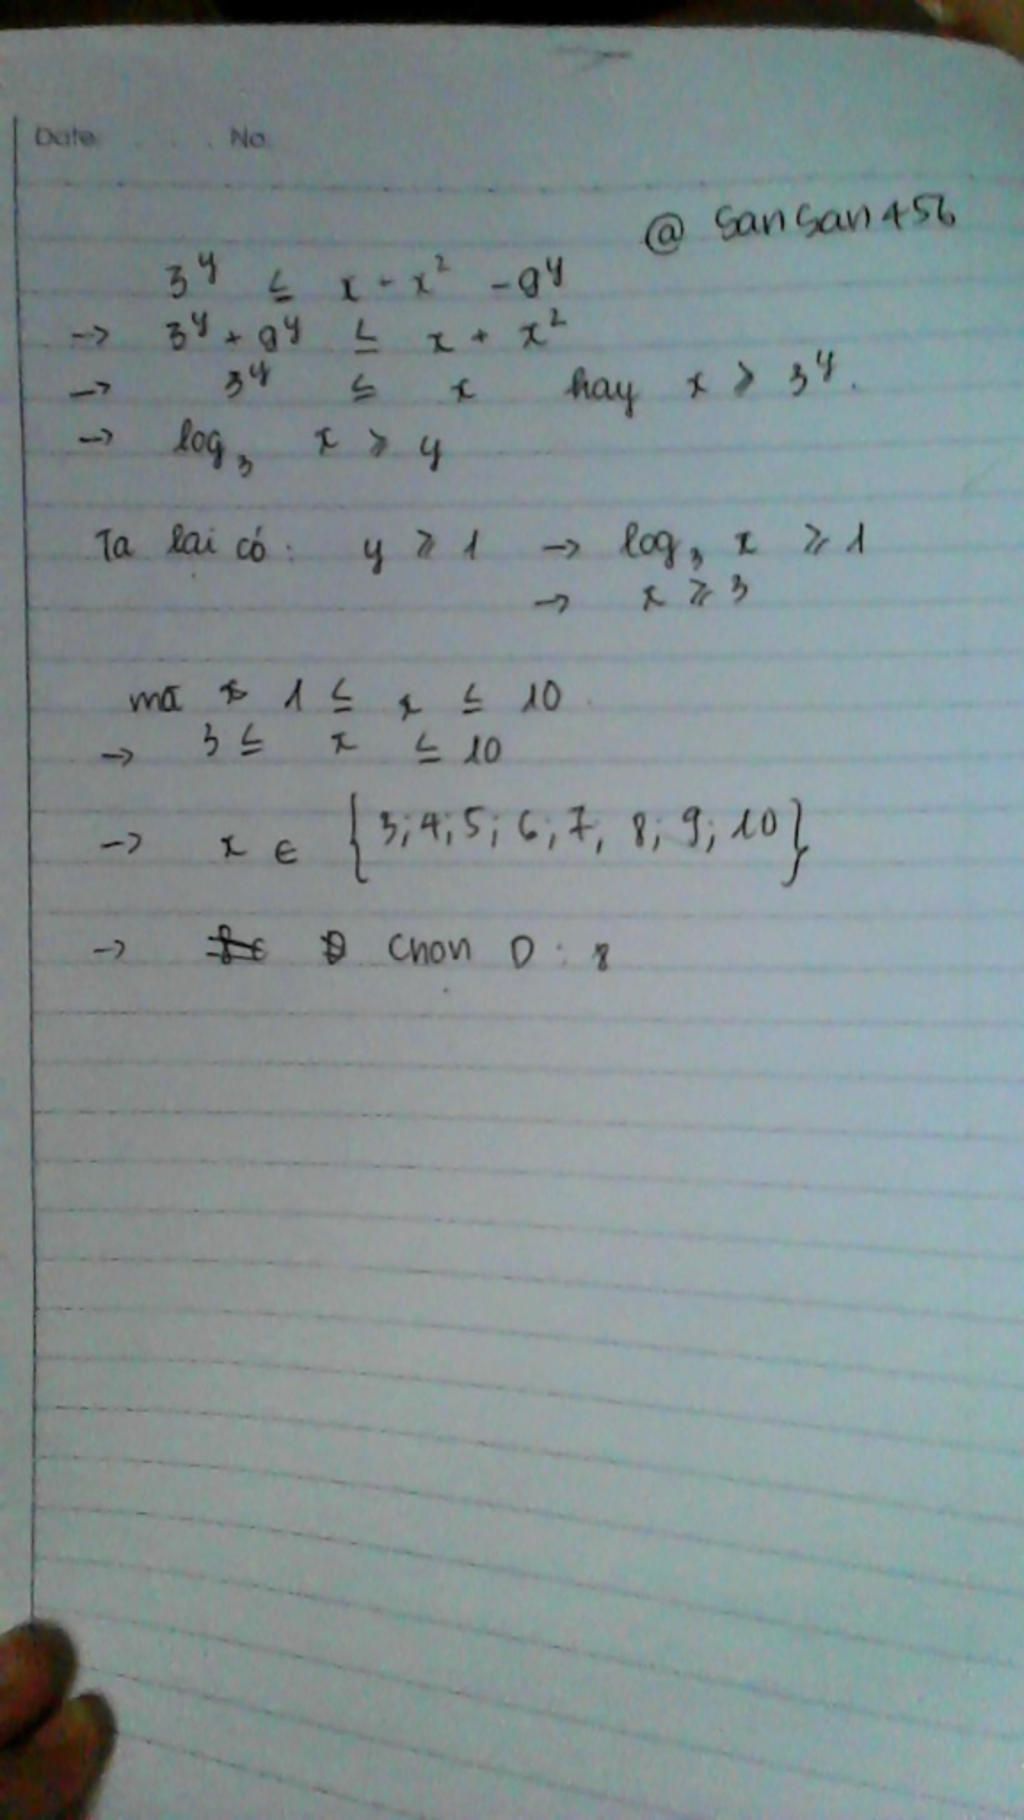 Date No
@ sansan456
3^y ≤ x - x² - 9^y
→ 3^y + 9^y ≤ x + x²
→ 3^y ≤ x hay x ≥ 3^y.
→ log₃ x ≥ y
Ta lai có: y ≥ 1 → log₃ x ≥ 1
→ x ≥ 3
mà 1 ≤ x ≤ 10
→ 3 ≤ x ≤ 10
→ x ∈ {3;4;5;6;7, 8;9;10}
→ Chọn D: 8